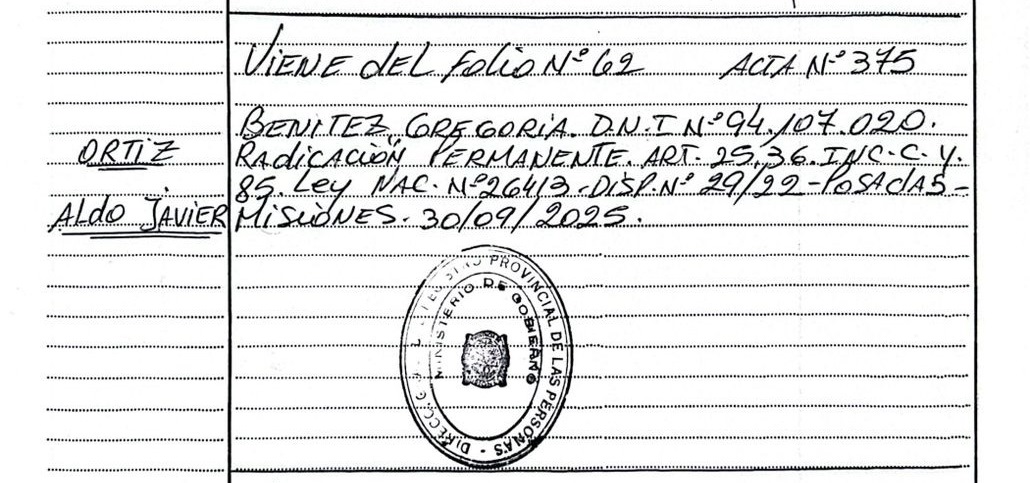 VIENE dEL Folio Nº 62 ACTA Nº 375
BENITEZ, GREGORIA. D.N.I Nº 94.107.020.
ORTIZ
RAdicACIÓN PERMANENTE. ART. 25,36. INC. C. Y.
85. Ley NAC. Nº 26413 - DISP. Nº 29/22 - POSAdAS -
ALdo JAVIER
MISIONES. 30/09/2025.
REGISTRO PROVINCIAL DE LAS PERSONAS
MINISTERIO DE GOBIERNO